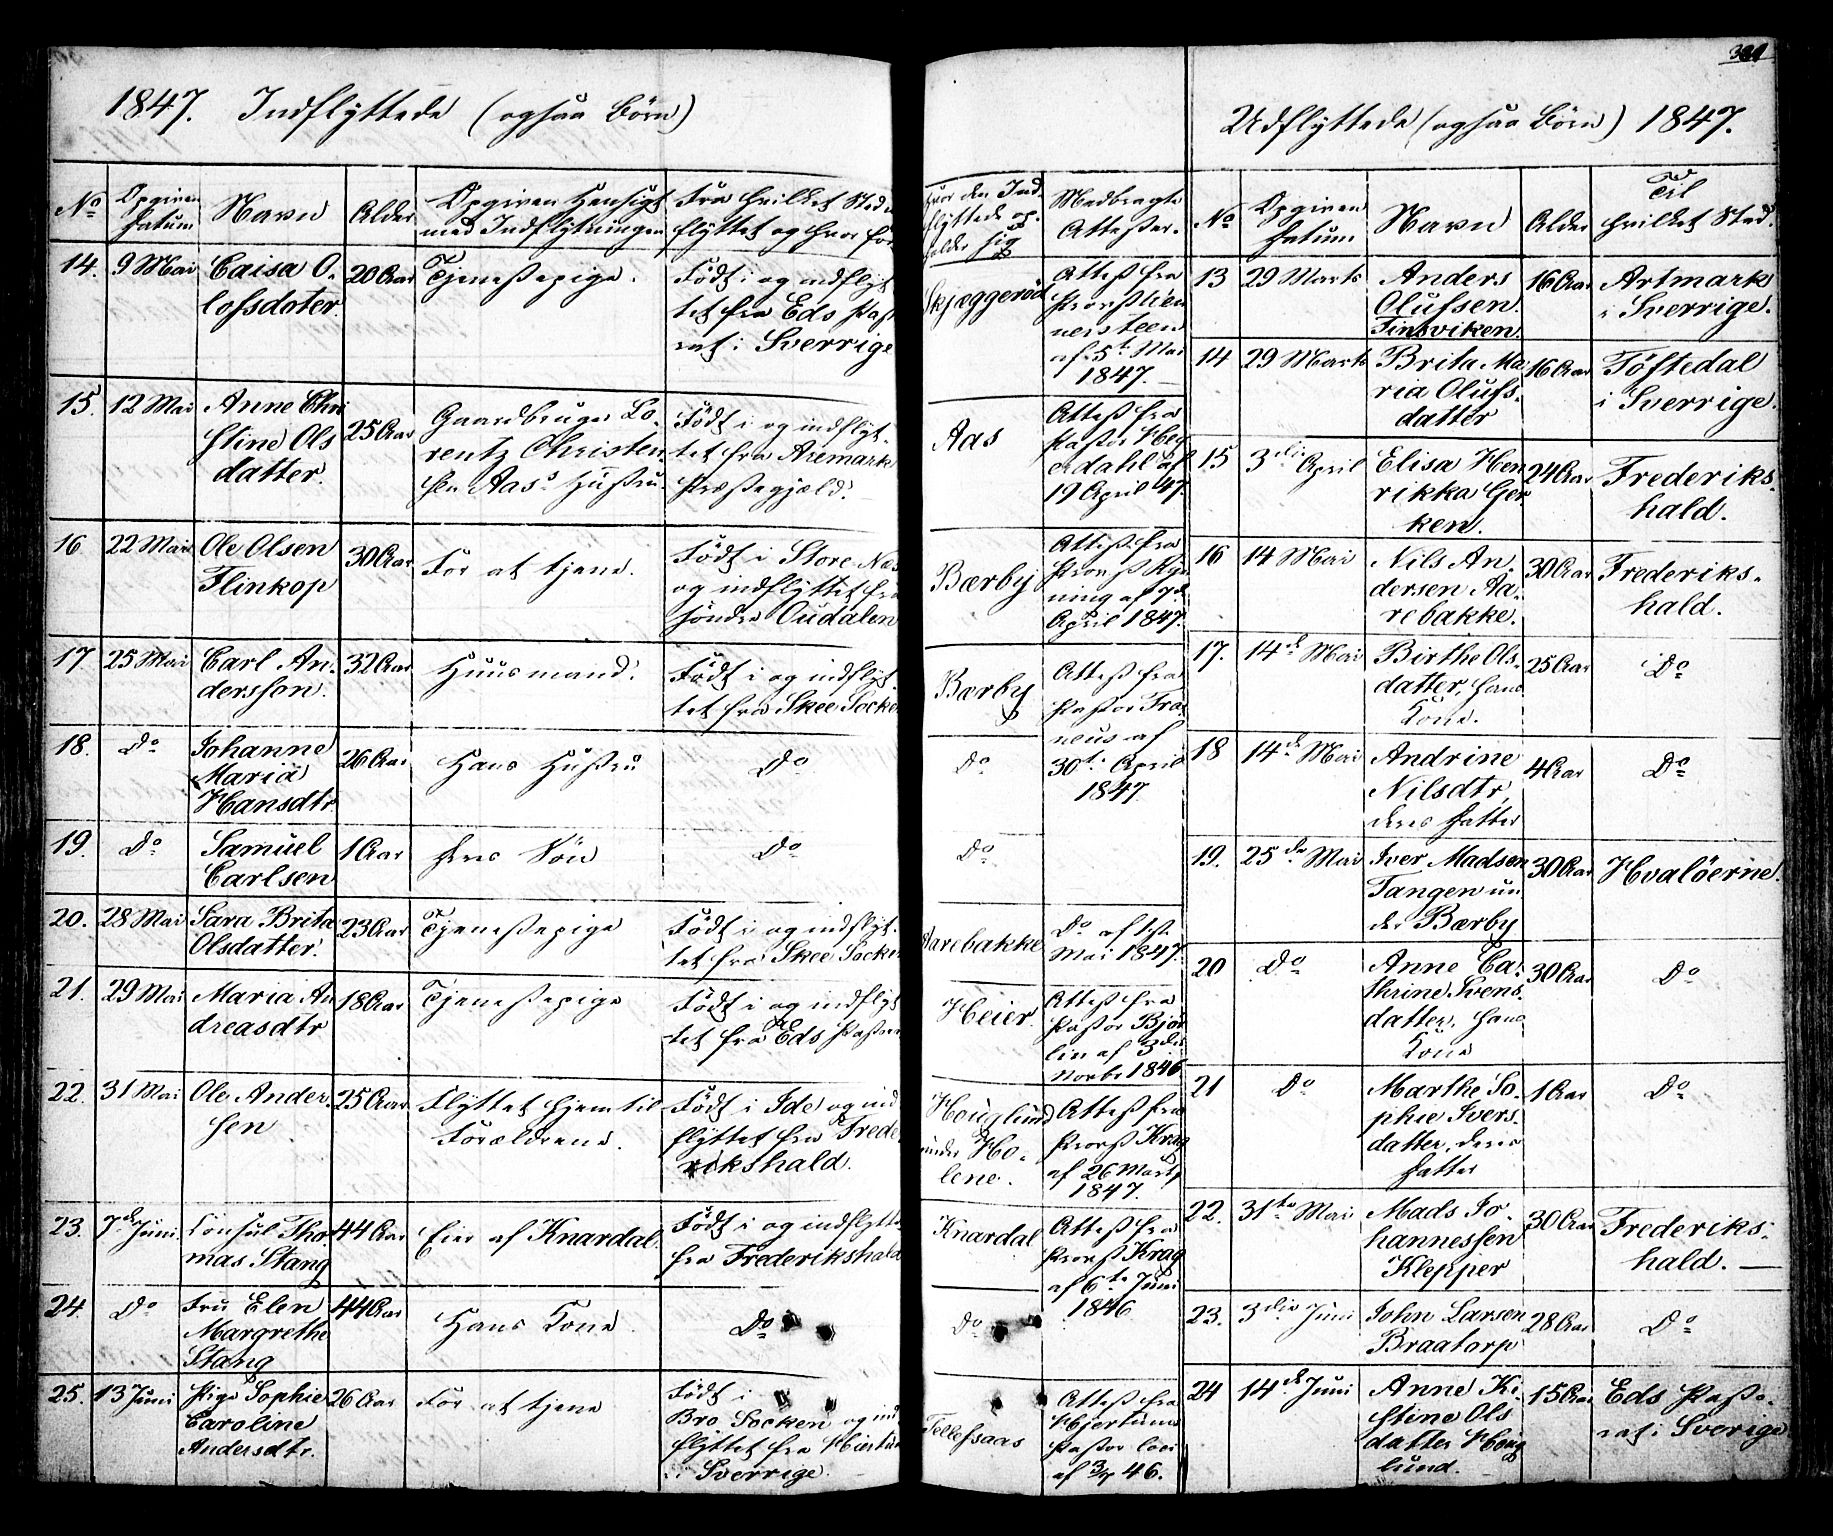 1847. Indflyttede (ogsaa Börn)
No
Opgiven Datum
Navn
Alder
Opgiven Hensigt
med Indflytningen
Fra hvilket Sted
flyttet og hvor fö
14. 9 Mai Caisa O-
lofsdoter.
20 Aar
Tjenestepige.
Födt i og indflyt
tet fra Eds Past
rat i Sverrige
Skjæggeröd
Attest fra
Provst
af 5te Mai
1847.
15. 12 Mai Anne Chri
stine Ols
datter.
25 Aar
Gaardbruger Lo-
rentz Christen
sen Aas's Hustru.
Födt i og indflyt-
tet fra Aremark
Præstegjæld.
Aas
Attest fra
Pastor Heg
erdahl af
19 April 47.
16. 22 Mai Ole Olsen
Flinkop
30 Aar
For at tjene.
Födt i Store Næs
og indflyttet fra
söndre Oudalen
Bærby
Attest fra
Provst Kyn
ning af 7de
April 1847.
17. 25 Mai Carl An-
dersson.
32 Aar
Huusmand.
Födt i og indflyt
tet fra Skee Socken
Bærby
Attest fra
Pastor Fra
neus af
30te April
1847.
18. Do Johanne
Maria
Hansdtr
26 Aar
Hans Hustru
Do
Do
19. Do Samuel
Carlsen
1 Aar
Deres Sön
Do
Do
20. 28 Mai Sara Brita
Olsdatter.
23 Aar
Tjenestepige
Födt i og indflyt-
tet fra Skee Socken
Aarebakke
Do af 1ste
Mai 1847.
21. 29 Mai Maria An
dreasdtr
18 Aar
Tjenestepige
Födt i og indflyt
tet fra Eds Pastor
Heier.
Attest fra
Pastor Björ
lin af 3die
Novbr 1846
22. 31 Mai Ole Ander-
sen
25 Aar
Flyttet hjem til
Forældrene.
Födt i Ide og ind
flyttet fra Frede-
rikshald.
Houglund
under Ho-
lene.
Attest fra
Provst Krag
af 26 Marts
1847.
23. 7de Juni Consul Tho
mas Stang
44 Aar
Eier af Knardal.
Födt i og indflyttet
fra Frederikshald
Knardal
Attest fra
Provst Krag
af 6te Juni
1846
24. Do Fru Elen
Margrethe
Stang
44 Aar
Hans Kone.
Do
Do
25. 13 Juni Pige Sophie
Caroline
Andersdtr.
26 Aar
For at tjene
Födt i
Bro Socken og ind
flyttet fra Hiertum
i Sverrige.
Tellefsaas
Attest fra
Hjertums
Pastor
af 3/7 46.
Hvor den Ind-
flyttede op-
holder sig
Medbragte
Attester.
301
Udflyttede (ogsaa Börn) 1847.
No
Opgiven
Datum
Navn
Alder
Til
hvilket Sted.
13 29 Marts Anders
Olufsen.
Finsviken.
16 Aar
Artmark
i Sverrige.
14 29 Marts Brita Ma
ria Olufs-
datter
16 Aar
Töftedal
i Sverrige.
15 3die April Elisa Hen
rikka Ger
ken.
24 Aar
Frederiks-
hald.
16 14 Mai Nils An-
dersen Aa-
rebakke.
30 Aar
Frederiks-
hald.
17. 14de Mai Birthe Ols-
datter, hans
Kone.
25 Aar
Do
18 14de Mai Andrine
Nilsdtr,
deres Datter
4 Aar
Do
19. 25de Mai Iver Madsen
Tangen un
der Bærby
30 Aar
Hvalöerne.
20 Do Anne Ca-
thrine Svens-
datter, hans
Kone
30 Aar
Do
21 Do Marthe So-
phie Ivers-
datter, deres
Datter
1 Aar
Do
22. 31te Mai Mads Jo-
hannessen
Klepper
30 Aar
Frederiks-
hald.
23. 3die Juni John Larsen
Braatorp
28 Aar
Do
24 14de Juni Anne Ki-
stine Ols
datter Houg
lund.
15 Aar
Eds Pasto-
rat i Sverige